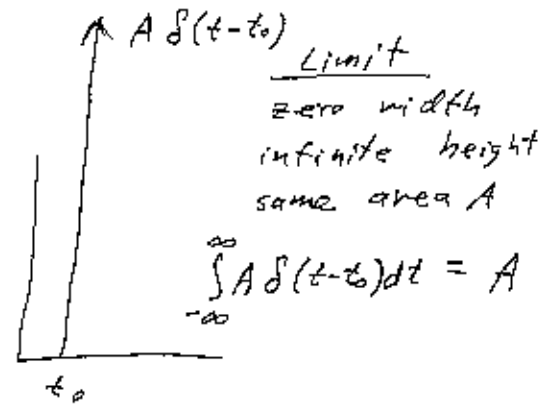 A δ(t-t₀)
Limit
zero width
infinite height
same area A
∫_{-∞}^{∞} A δ(t-t₀)dt = A
t₀